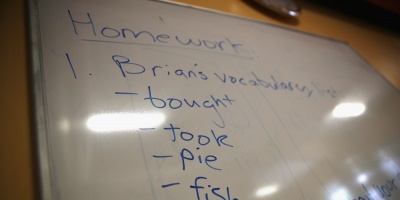 Homework
1. Brian's vocabulary list
- bought
- took
- pie
- fish